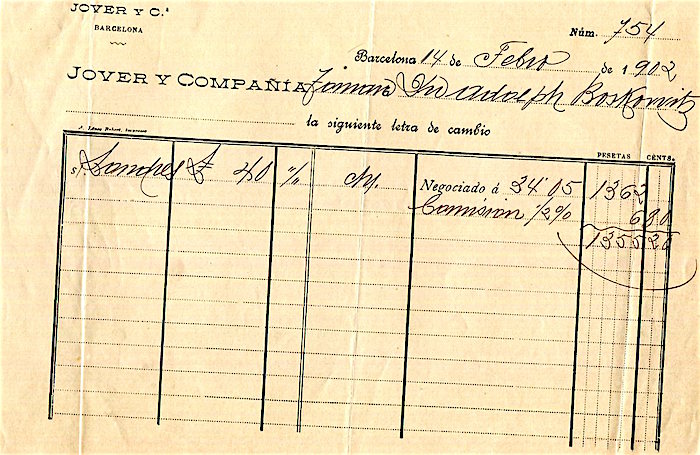 JOVER Y C.ª
BARCELONA
Núm. 754
Barcelona 14 de Febro de 1902
JOVER Y COMPAÑÍA Adolph Boskowitz
la siguiente letra de cambio
PESETAS CENTS.
s/ Londres £ 40 "/" Negociado á 34'05 1362
Comision ½% 6 80
1355 20